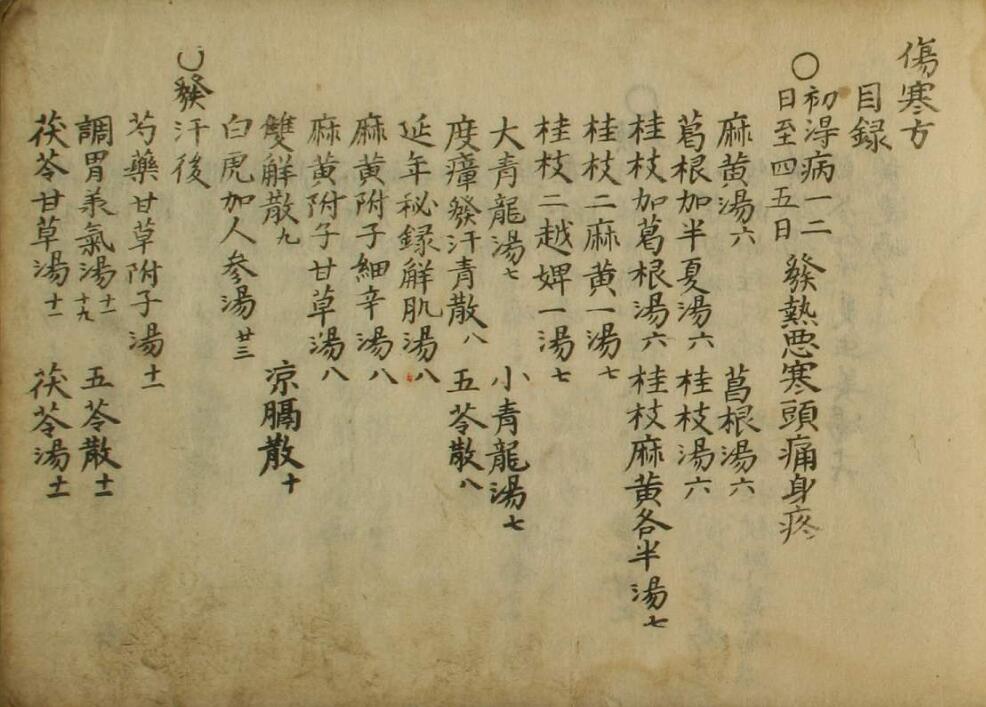 傷寒方
目録
○初得病一二日至四五日 發熱惡寒頭痛身疼
麻黄湯六 葛根湯六
葛根加半夏湯六 桂枝湯六
桂枝加葛根湯六 桂枝麻黄各半湯七
桂枝二麻黄一湯七
桂枝二越婢一湯七
大青龍湯七 小青龍湯七
度瘴發汗青散八 五苓散八
延年秘録解肌湯八
麻黄附子細辛湯八
麻黄附子甘草湯八
雙解散九 凉膈散十
白虎加人参湯廿三
○發汗後
芍藥甘草附子湯十一
調胃承氣湯十一十九 五苓散十一
茯苓甘草湯十一 茯苓湯十一